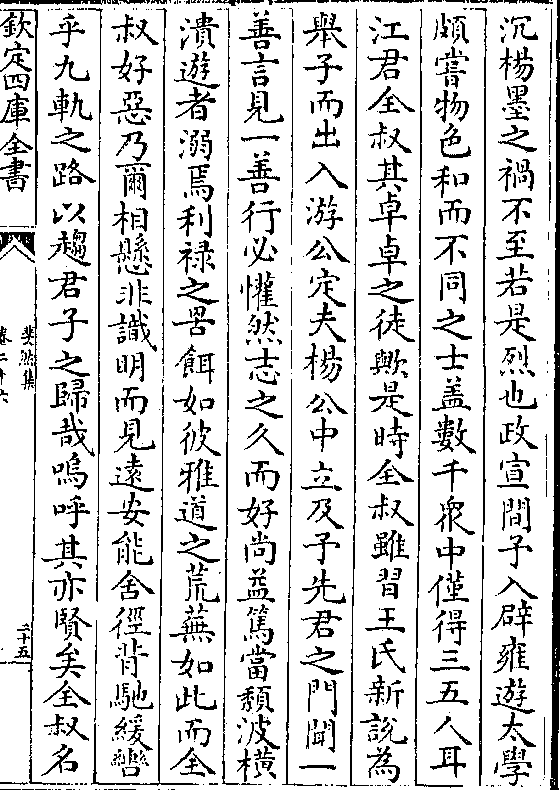 沉楊墨之禍不至若是烈也政宣間予入辟雍遊太學
頗嘗物色和而不同之士盖數千衆中僅得三五人耳
江君全叔其卓卓之徒歟是時全叔雖習王氏新說為
舉子而出入游公定夫楊公中立及予先君之門聞一
善言見一善行必懽然志之久而好尚益篤當頽波橫
潰遊者溺焉利禄之罟餌如彼雅道之荒蕪如此而全
叔好惡乃爾相懸非識明而見遠安能舍徑背馳緩轡
乎九軌之路以趨君子之歸哉嗚呼其亦賢矣全叔名
欽定四庫全書
斐然集
卷二十六
二十五